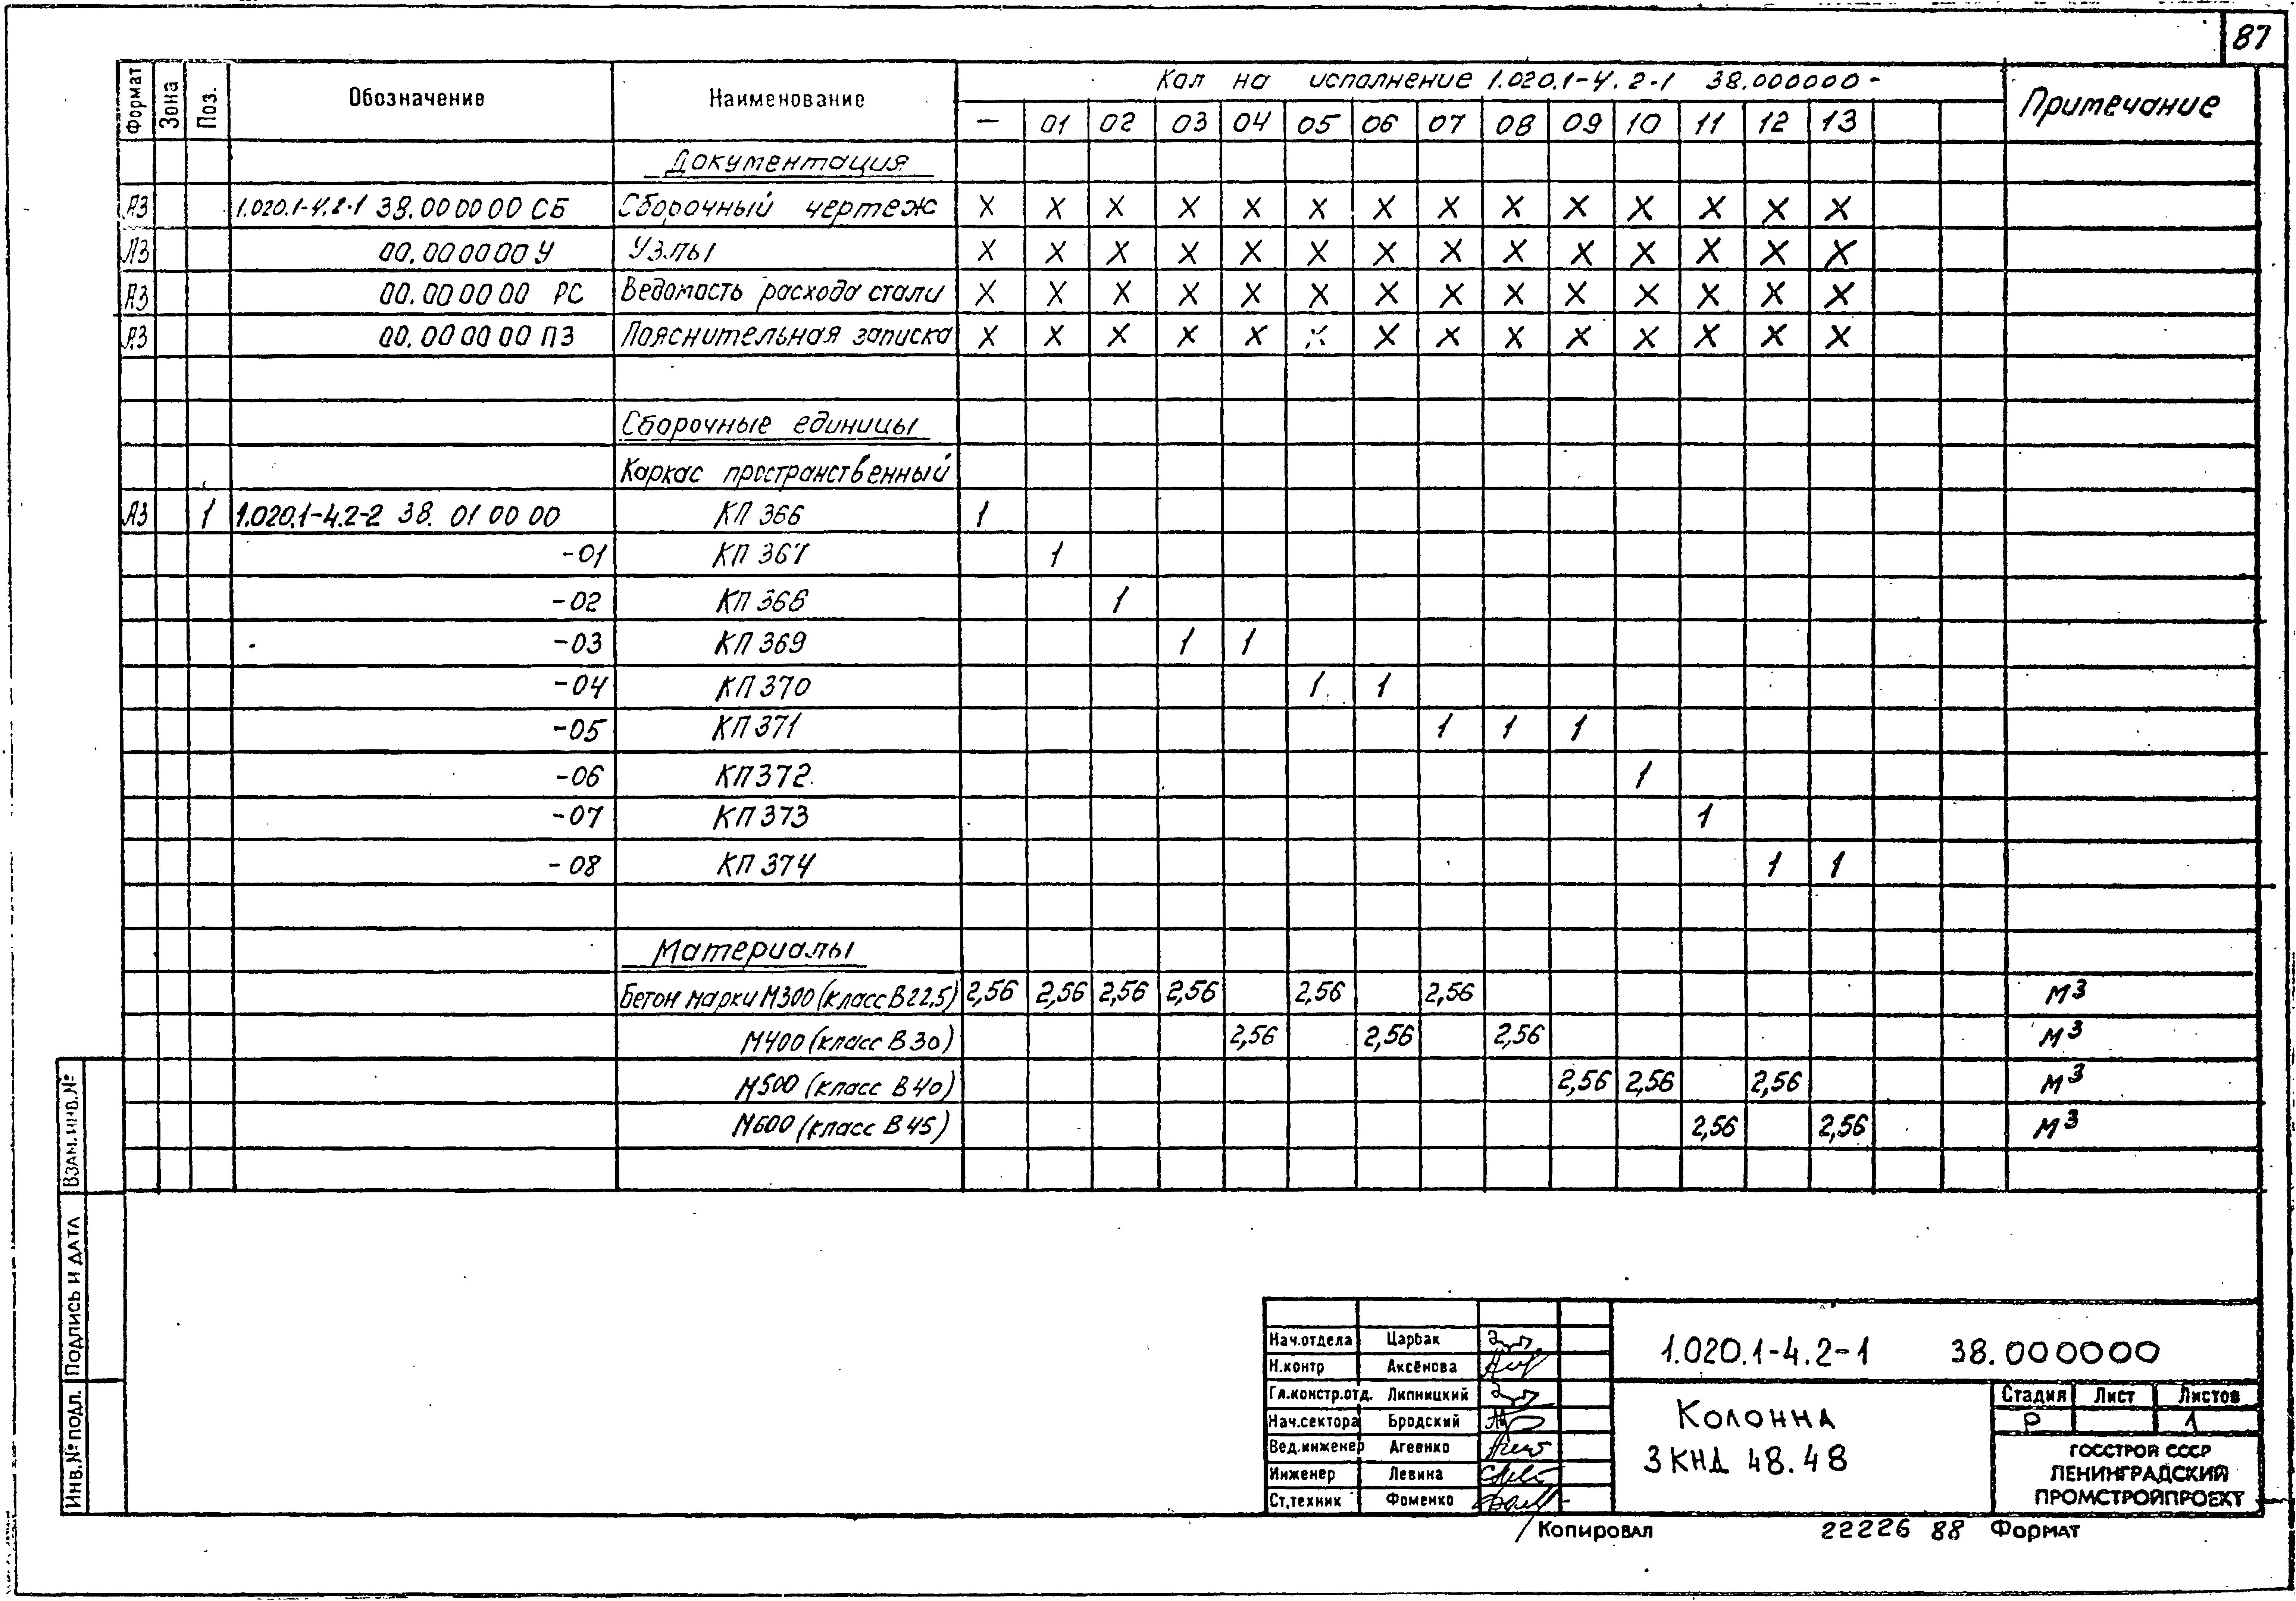 87
Формат Зона Поз. Обозначение Наименование Кол на исполнение 1.020.1-4.2-1 38.000000- Примечание
— 01 02 03 04 05 06 07 08 09 10 11 12 13
Документация
А3 1.020.1-4.2-1 38.000000 СБ Сборочный чертеж X X X X X X X X X X X X X X
А3 00.000000 У Узлы X X X X X X X X X X X X X X
А3 00.000000 РС Ведомасть расхода стали X X X X X X X X X X X X X X
А3 00.000000 ПЗ Пояснительная записка X X X X X X X X X X X X X X
Сборочные единицы
Каркас пространственный
А3 1 1.020.1-4.2-2 38. 01 00 00 КП 366 1
-01 КП 367 1
-02 КП 368 1
-03 КП 369 1 1
-04 КП 370 1 1
-05 КП 371 1 1 1
-06 КП 372 1
-07 КП 373 1
-08 КП 374 1 1
Материалы
Бетон марки М300 (класс В22,5) 2,56 2,56 2,56 2,56 2,56 2,56 м3
М400 (класс В30) 2,56 2,56 2,56 м3
М500 (класс В40) 2,56 2,56 2,56 м3
М600 (класс В45) 2,56 2,56 м3
Взам.инв.№
Подпись и дата
Инв.№ подл.
Нач.отдела Царбак
Н.контр Аксёнова
Гл.констр.отд. Липницкий
Нач.сектора Бродский
Вед.инженер Агеенко
Инженер Левина
Ст.техник Фоменко
1.020.1-4.2-1 38.000000
Колонна
3КНД 48.48
Стадия Лист Листов
Р 1
ГОССТРОЙ СССР
ЛЕНИНГРАДСКИЙ
ПРОМСТРОЙПРОЕКТ
Копировал 22226 88 Формат